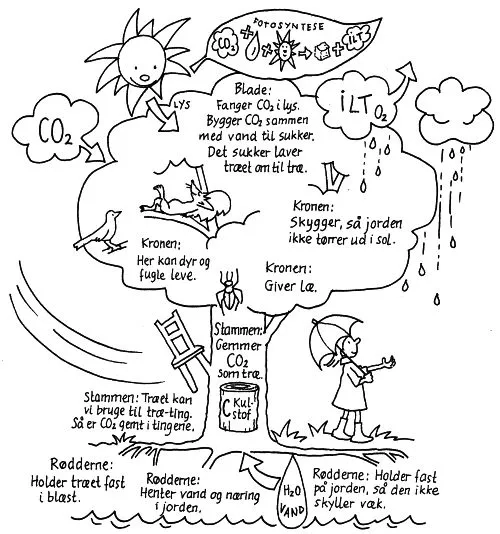 FOTOSYNTESE
CO2 + + → + iLT
LYS
Blade:
Fanger CO2 i lys.
Bygger CO2 sammen
med vand til sukker.
Det sukker laver
træet om til træ.
iLT O2
CO2
Kronen:
Skygger, så jorden
ikke tørrer ud i sol.
Kronen:
Her kan dyr og
fugle leve.
Kronen:
Giver læ.
Stammen:
Gemmer
CO2
som træ.
C Kul-
stof
Stammen: Træet kan
vi bruge til træ-ting.
Så er CO2 gemt i tingene.
Rødderne:
Holder træet fast
i blæst.
Rødderne:
Henter vand og næring
i jorden.
H2O
VAND
Rødderne: Holder fast
på jorden, så den ikke
skyller væk.